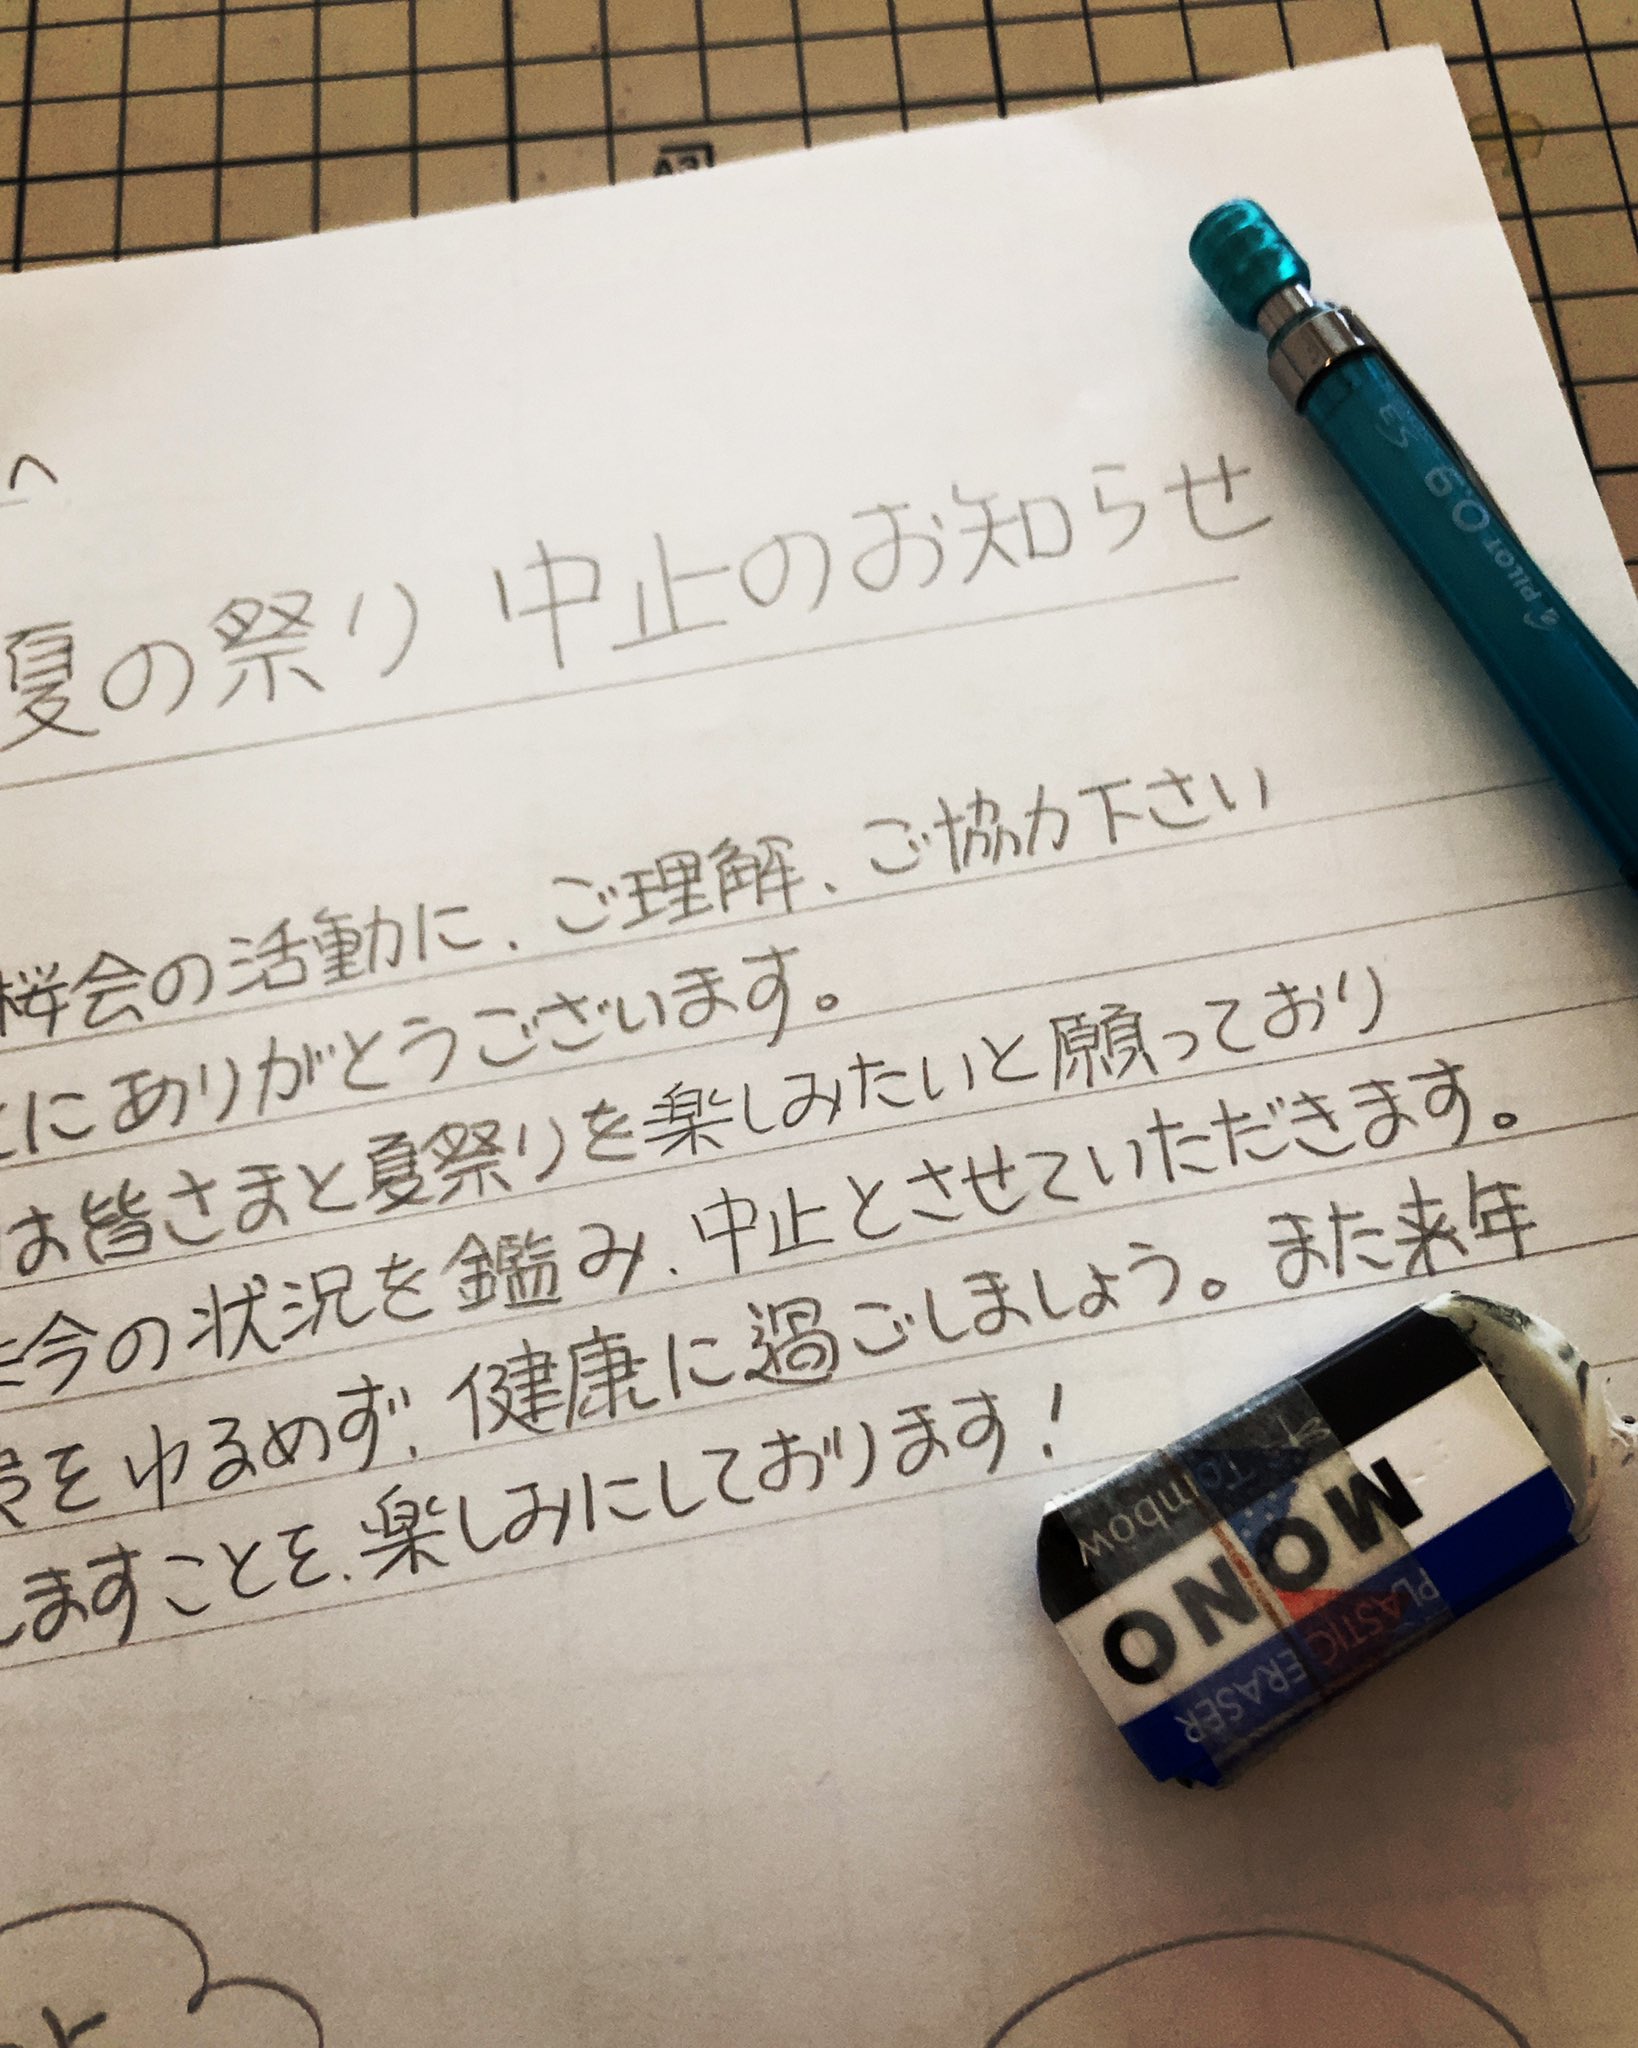 A3
へ
夏の祭り 中止のお知らせ
桜会の活動に、ご理解、ご協力下さい
にありがとうございます。
は皆さまと夏祭りを楽しみたいと願っており
今の状況を鑑み、中止とさせていただきます。
をゆるめず、健康に過ごしましょう。また来年
しますことを、楽しみにしております！
PILOT 0.9 S3
Tombow
MONO
PLASTIC ERASER